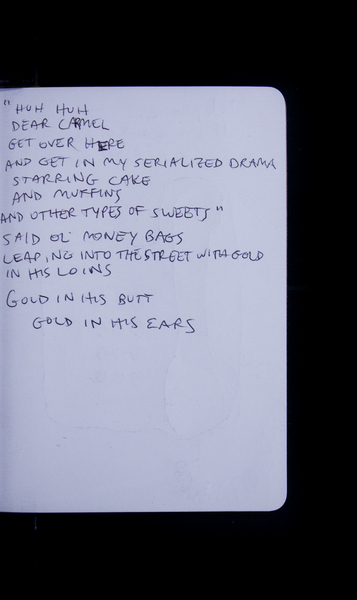 "HUH HUH
DEAR CARMEL
GET OVER HERE
AND GET IN MY SERIALIZED DRAMA
STARRING CAKE
AND MUFFINS
AND OTHER TYPES OF SWEETS"
SAID OL' MONEY BAGS
LEAPING INTO THE STREET WITH GOLD
IN HIS LOINS
GOLD IN HIS BUTT
GOLD IN HIS EARS